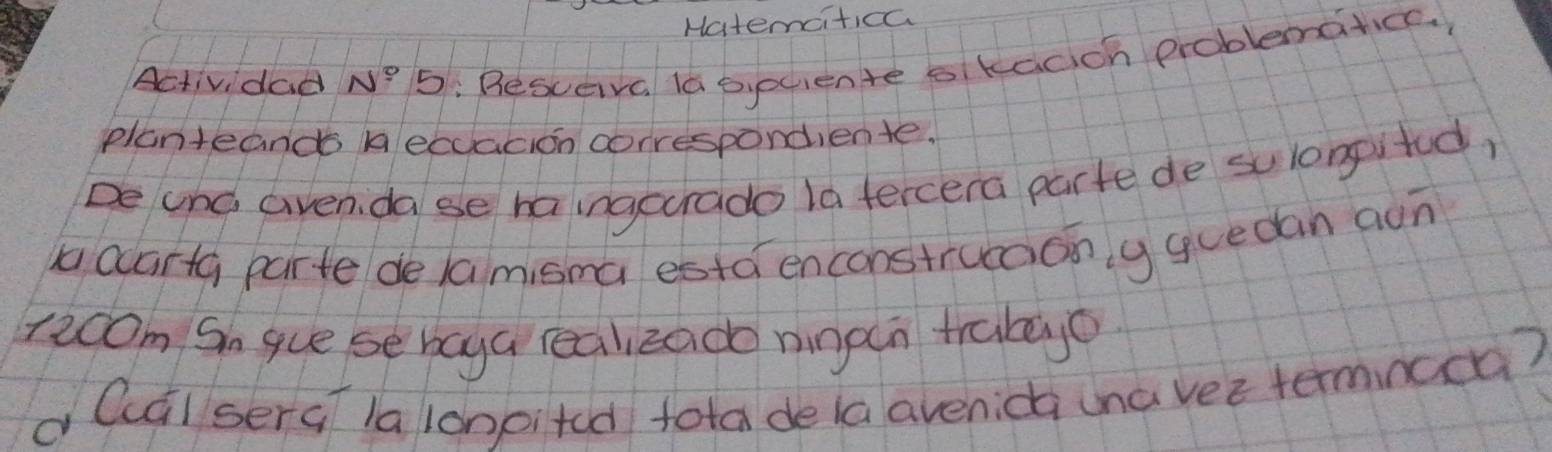 Matemática
Actividad Nº 5: Resuelva la siguiente situación problemática,
planteando la ecuación correspondiente.
De una avenida se ha inagurado la tercera parte de su longitud,
la cuarta parte de la misma está en construcción, y quedan aún
1200m Sin que se haya realizado ningún trabajo.
¿Cuál será la longitud total de la avenida una vez terminada?